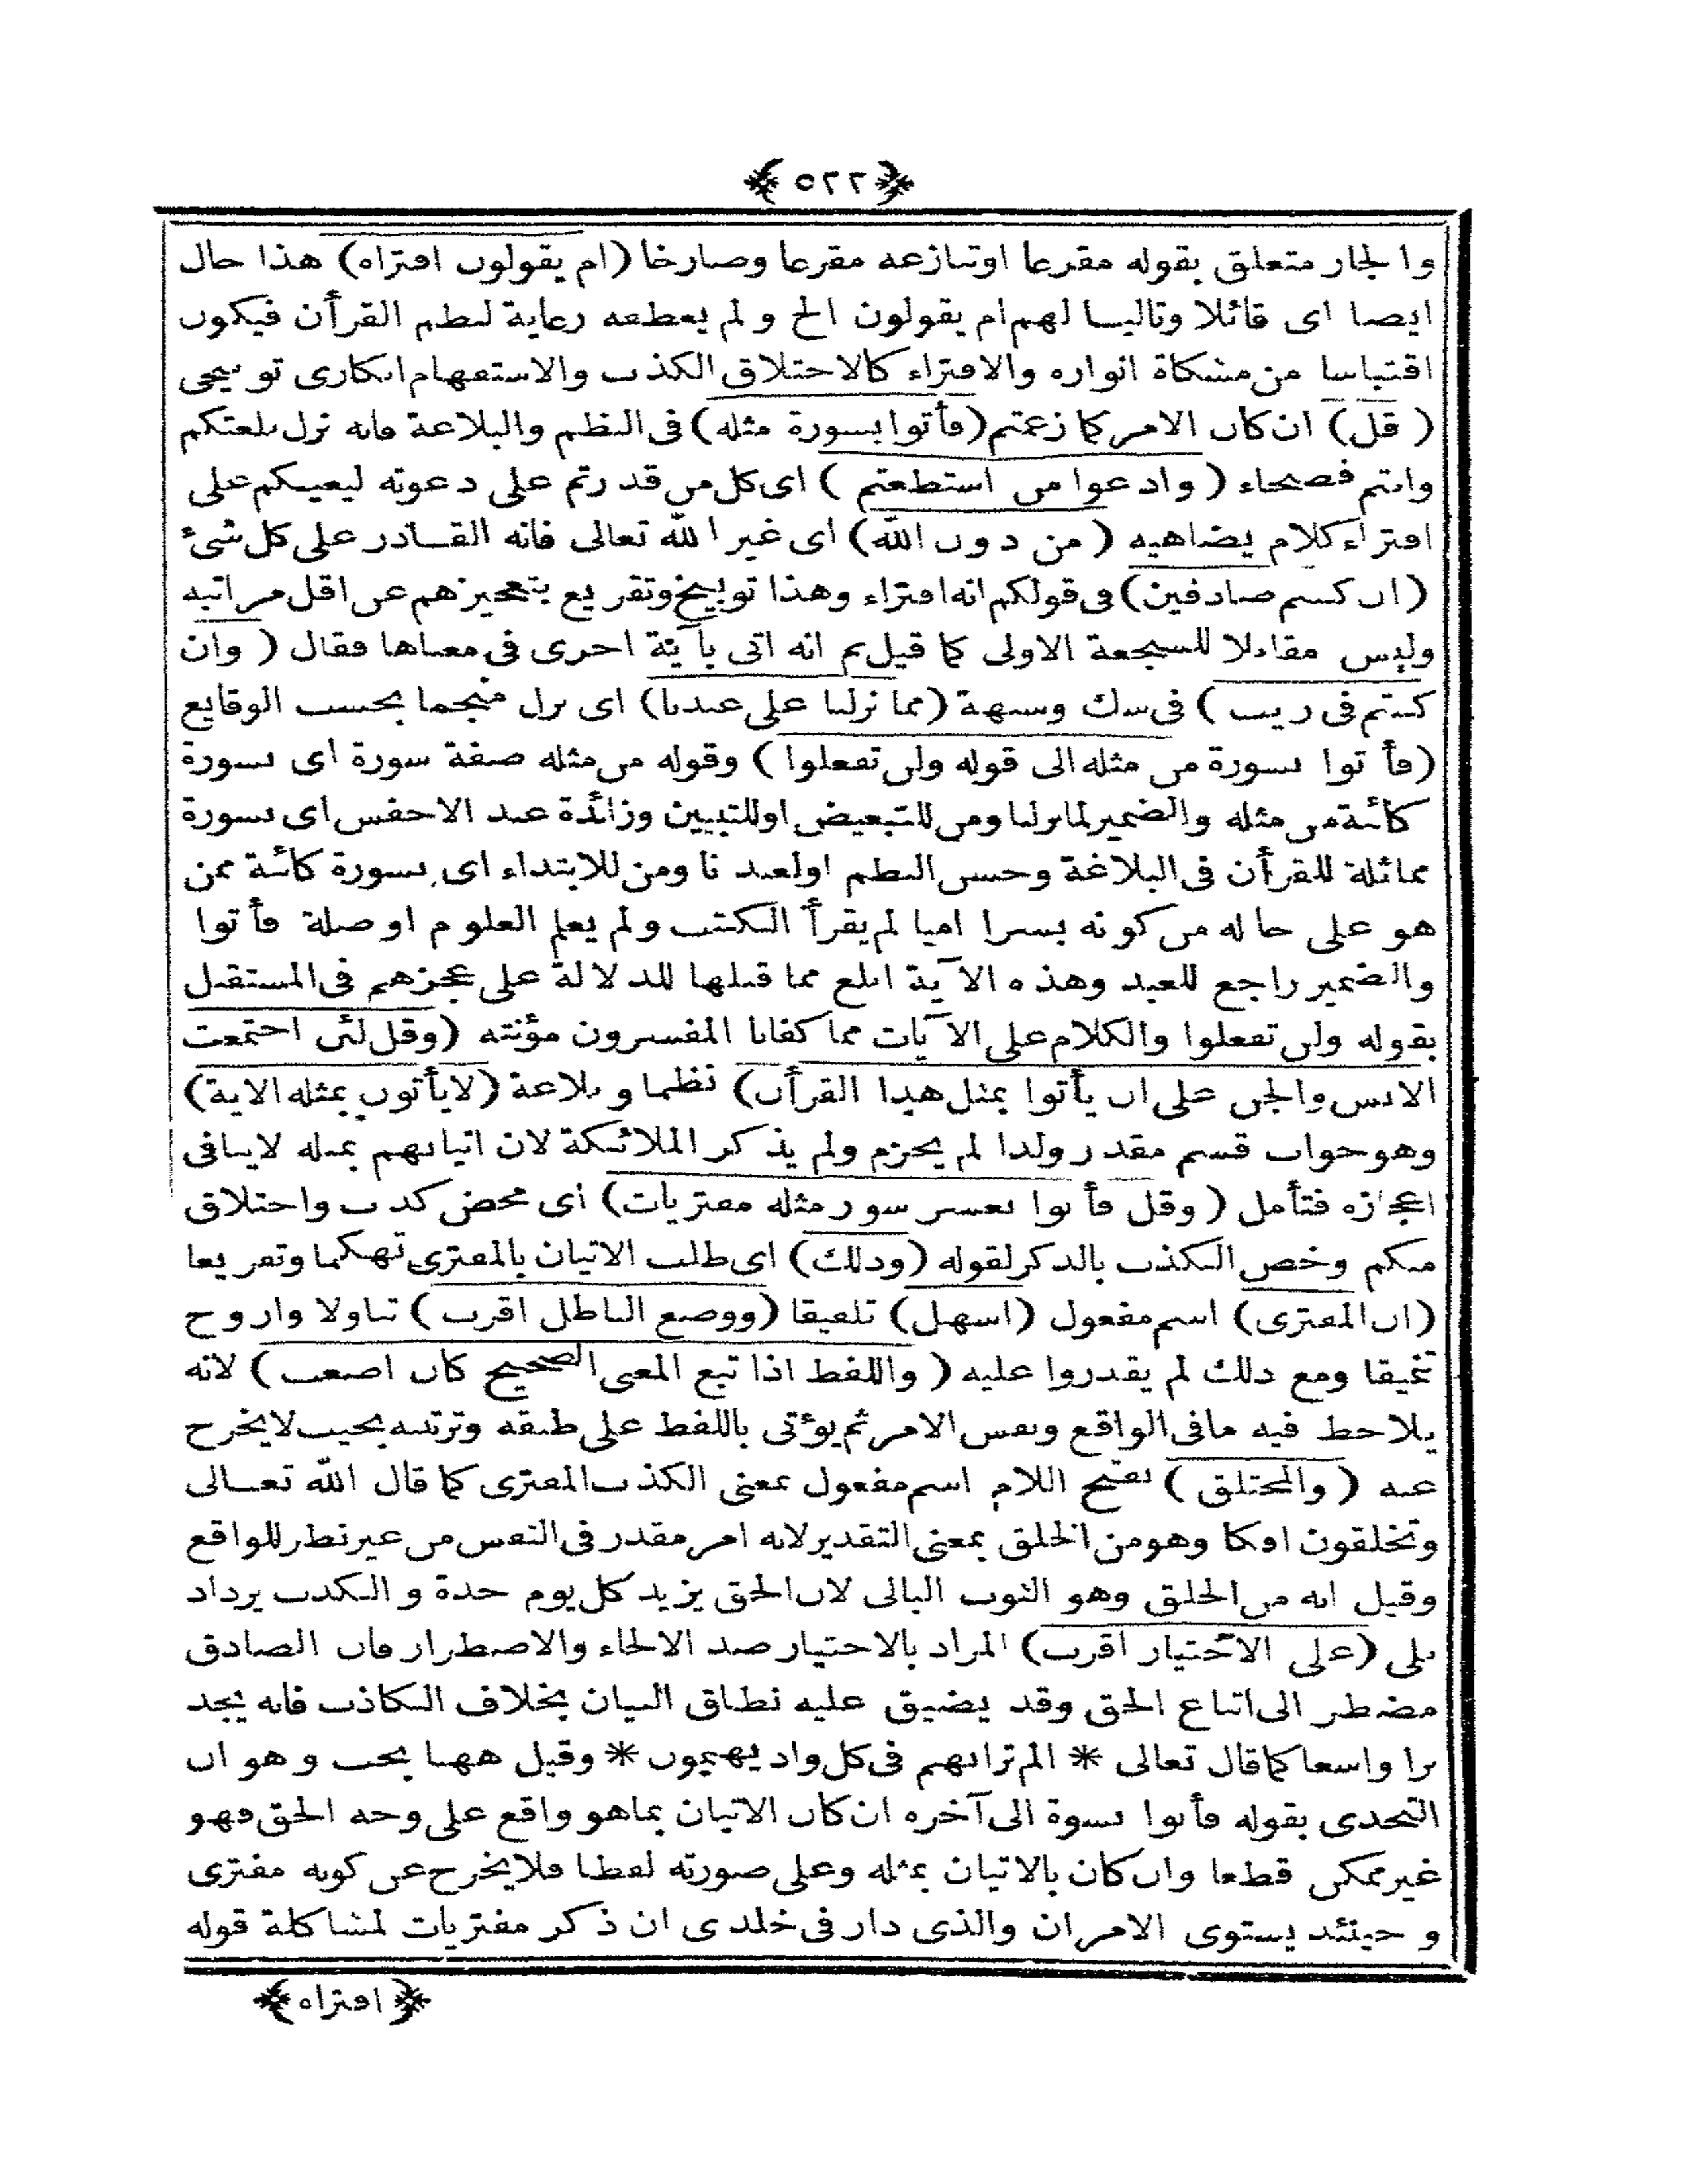 ﴿ ٥٢٢ ﴾
والجار متعلق بقوله مقرعا اوتنازعه مقرعا وصارخا (ام يقولون افتراه) هذا حال
ايضا اى قائلا وتاليا لهم ام يقولون الخ ولم يعطفه رعاية لنظم القرأن فيكون
اقتباسا من مشكاة انواره والافتراء كالاختلاق الكذب والاستفهام انكارى توبيخى
(قل) ان كان الامر كما زعمتم (فأتوا بسورة مثله) فى النظم والبلاغة فانه نزل بلغتكم
وانتم فصحاء (وادعوا من استطعتم) اى كل من قدرتم على دعوته ليعينكم على
افتراء كلام يضاهيه (من دون الله) اى غير الله تعالى فانه القادر على كل شئ
(ان كنتم صادقين) فى قولكم انه افتراء وهذا توبيخ وتقريع بتعجيزهم عن اقل مراتبه
وليس مقابلا للسجعة الاولى كما قيل ثم انه اتى بآية اخرى فى معناها فقال (وان
كنتم فى ريب) فى شك وشبهة (مما نزلنا على عبدنا) اى نزل منجما بحسب الوقايع
(فأتوا بسورة من مثله الى قوله ولن تفعلوا) وقوله من مثله صفة سورة اى بسورة
كائنة من مثله والضمير لما نزلنا ومن للتبعيض او للتبيين وزائدة عند الاخفش اى بسورة
مماثلة للقرأن فى البلاغة وحسن النظم او لعبدنا ومن للابتداء اى بسورة كائنة ممن
هو على حاله من كونه بشرا اميا لم يقرأ الكتب ولم يعلم العلوم او صلة فأتوا
والضمير راجع للعبد وهذه الآية ابلغ مما قبلها للدلالة على عجزهم فى المستقبل
بقوله ولن تفعلوا والكلام على الآيات مما كفانا المفسرون مؤنته (وقل لئن اجتمعت
الانس والجن على ان يأتوا بمثل هذا القرأن) نظما وبلاغة (لا يأتون بمثله الاية)
وهو جواب قسم مقدر ولذا لم يجزم ولم يذكر الملائكة لان اتيانهم بمثله لاينافى
اعجازه فتأمل (وقل فأتوا بعشر سور مثله مفتريات) اى محض كذب واختلاق
منكم وخص الكذب بالذكر لقوله (وذلك) اى طلب الاتيان بالمفترى تهكما وتقريعا
(ان المفترى) اسم مفعول (اسهل) تلفيقا (ووضع الباطل اقرب) تناولا واروح
تنميقا ومع ذلك لم يقدروا عليه (واللفظ اذا تبع المعنى الصحيح كان اصعب) لانه
يلاحظ فيه مافى الواقع ونفس الامر ثم يؤتى باللفظ على طبقه وترتيبه بحيث لايخرج
عنه (والمختلق) بفتح اللام اسم مفعول بمعنى الكذب المفترى كما قال الله تعالى
وتخلقون افكا وهو من الخلق بمعنى التقدير لانه امر مقدر فى النفس من غير نظر للواقع
وقيل انه من الخلق وهو الثوب البالى لان الحق يزيد كل يوم جدة والكذب يزداد
بلى (على الاختيار اقرب) المراد بالاختيار ضد الالجاء والاضطرار فان الصادق
مضطر الى اتباع الحق وقد يضيق عليه نطاق البيان بخلاف الكاذب فانه يجد
برا واسعا كما قال تعالى * الم تر انهم فى كل واد يهيمون * وقيل ههنا بحث وهو ان
التحدى بقوله فأتوا بسوة الى آخره ان كان الاتيان بماهو واقع على وجه الحق فهو
غير ممكن قطعا وان كان بالاتيان بمثله وعلى صورته لفظا فلا يخرج عن كونه مفترى
وحينئذ يستوى الامران والذى دار فى خلدى ان ذكر مفتريات لمشاكلة قوله
﴿ افتراه ﴾